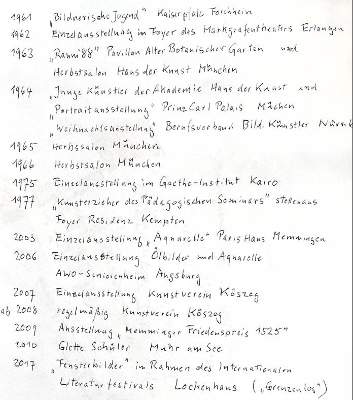 1961 „Bildnerische Jugend" Kaiserpfalz Forchheim
1962 Einzelausstellung im Foyer des Markgrafentheaters Erlangen
1963 „Raum '88" Pavillon Alter Botanischer Garten und
Herbstsalon Haus der Kunst München
1964 „Junge Künstler der Akademie Haus der Kunst und
„Portraitausstellung" Prinz Carl Palais München
„Weihnachtsausstellung" Berufsverband Bild. Künstler Nürnb
1965 Herbstsalon München
1966 Herbstsalon München
1975 Einzelausstellung im Goethe-Institut Kairo
1977 „Kunsterzieher des Pädagogischen Seminars"
Foyer Residenz Kempten
2003 Einzelausstellung „Aquarelle" Paris Haus Memmingen
2006 Einzelausstellung Ölbilder und Aquarelle
AWO-Seniorenheim Augsburg
2007 Einzelausstellung Kunstverein Köszeg
ab 2008 regelmäßig Kunstverein Köszeg
2009 Ausstellung „Memminger Friedenspreis 1525"
2010 Glette Schüler Muhr am See
2017 „Fensterbilder" im Rahmen des internationalen
Literaturfestivals Lockenhaus („Grenzenlos")